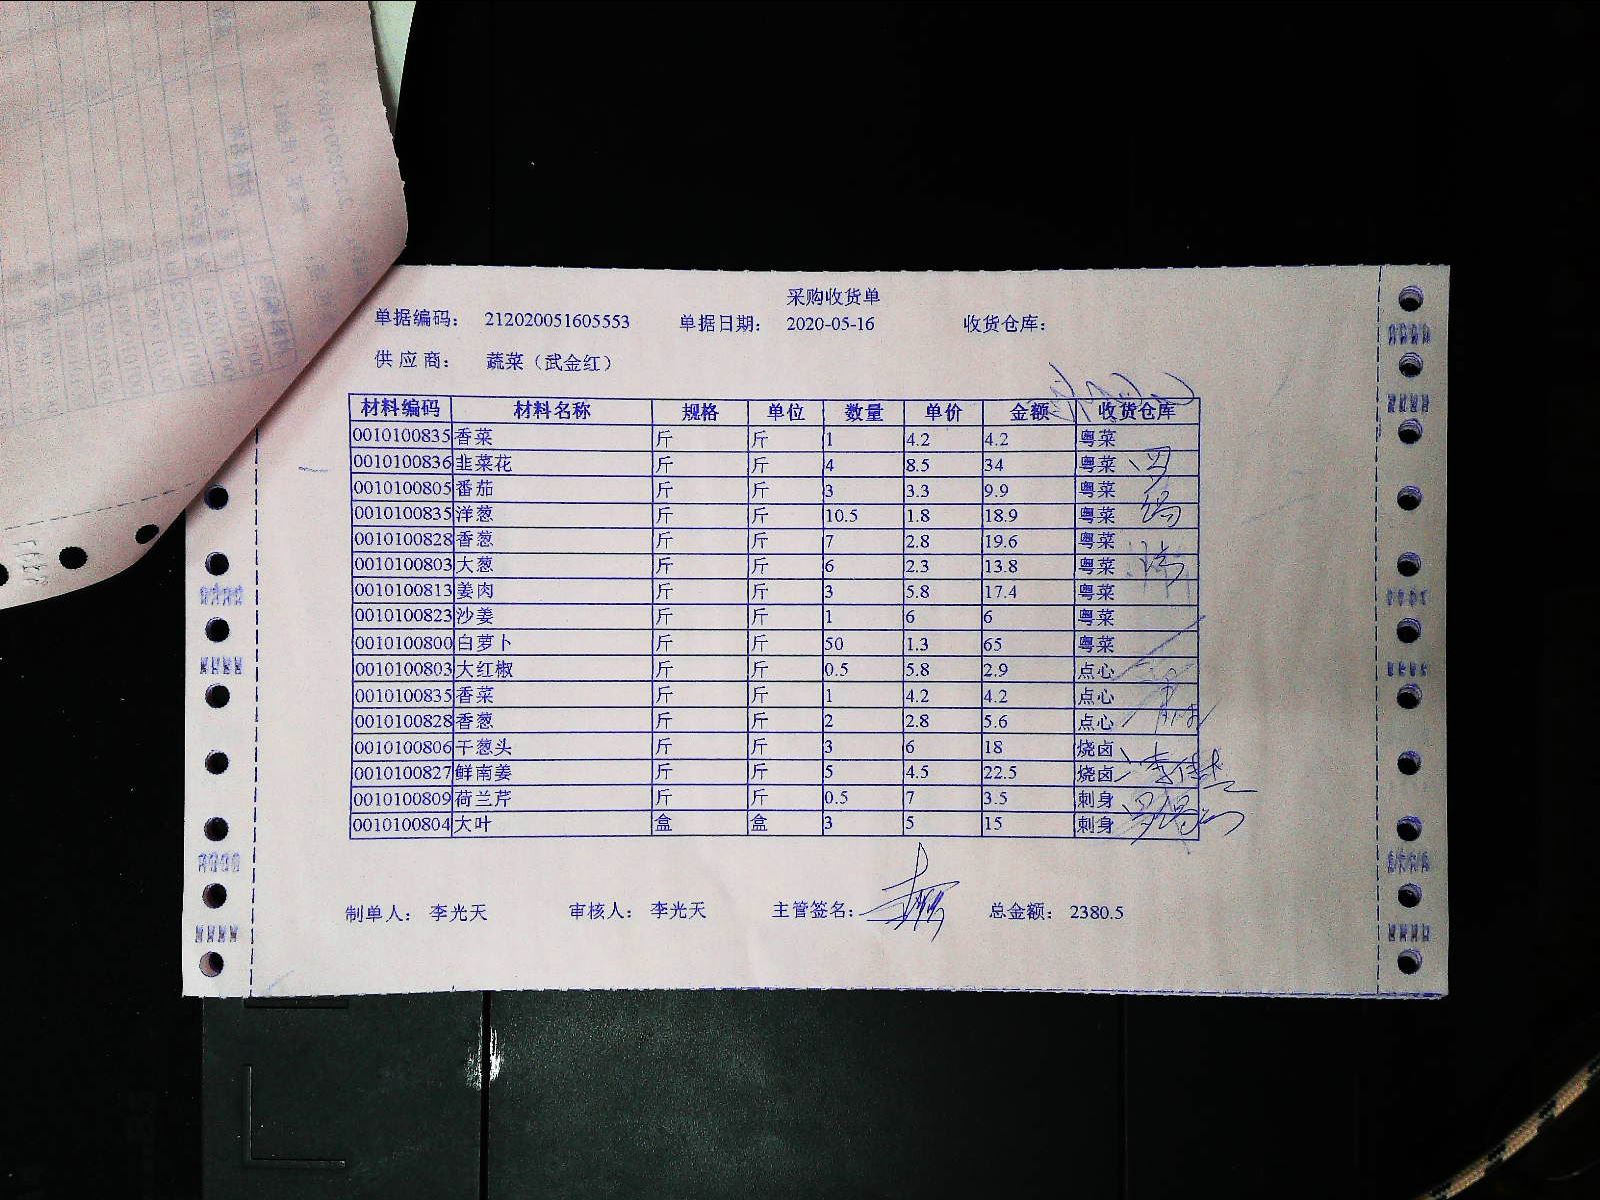 采购收货单
单据编码： 212020051605553 单据日期： 2020-05-16 收货仓库：
供应商： 蔬菜（武金红）
材料编码 材料名称 规格 单位 数量 单价 金额 收货仓库
0010100835 香菜 斤 斤 1 4.2 4.2 粤菜
0010100836 韭菜花 斤 斤 4 8.5 34 粤菜
0010100805 番茄 斤 斤 3 3.3 9.9 粤菜
0010100835 洋葱 斤 斤 10.5 1.8 18.9 粤菜
0010100828 香葱 斤 斤 7 2.8 19.6 粤菜
0010100803 大葱 斤 斤 6 2.3 13.8 粤菜
0010100813 姜肉 斤 斤 3 5.8 17.4 粤菜
0010100823 沙姜 斤 斤 1 6 6 粤菜
0010100800 白萝卜 斤 斤 50 1.3 65 粤菜
0010100803 大红椒 斤 斤 0.5 5.8 2.9 点心
0010100835 香菜 斤 斤 1 4.2 4.2 点心
0010100828 香葱 斤 斤 2 2.8 5.6 点心
0010100806 干葱头 斤 斤 3 6 18 烧卤
0010100827 鲜南姜 斤 斤 5 4.5 22.5 烧卤
0010100809 荷兰芹 斤 斤 0.5 7 3.5 刺身
0010100804 大叶 盒 盒 3 5 15 刺身
制单人： 李光天 审核人： 李光天 主管签名： 总金额： 2380.5